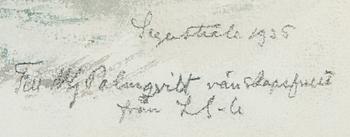 Segerstråle 1935
Till Hj Palmqvist vänskapsfullt
från L S-le